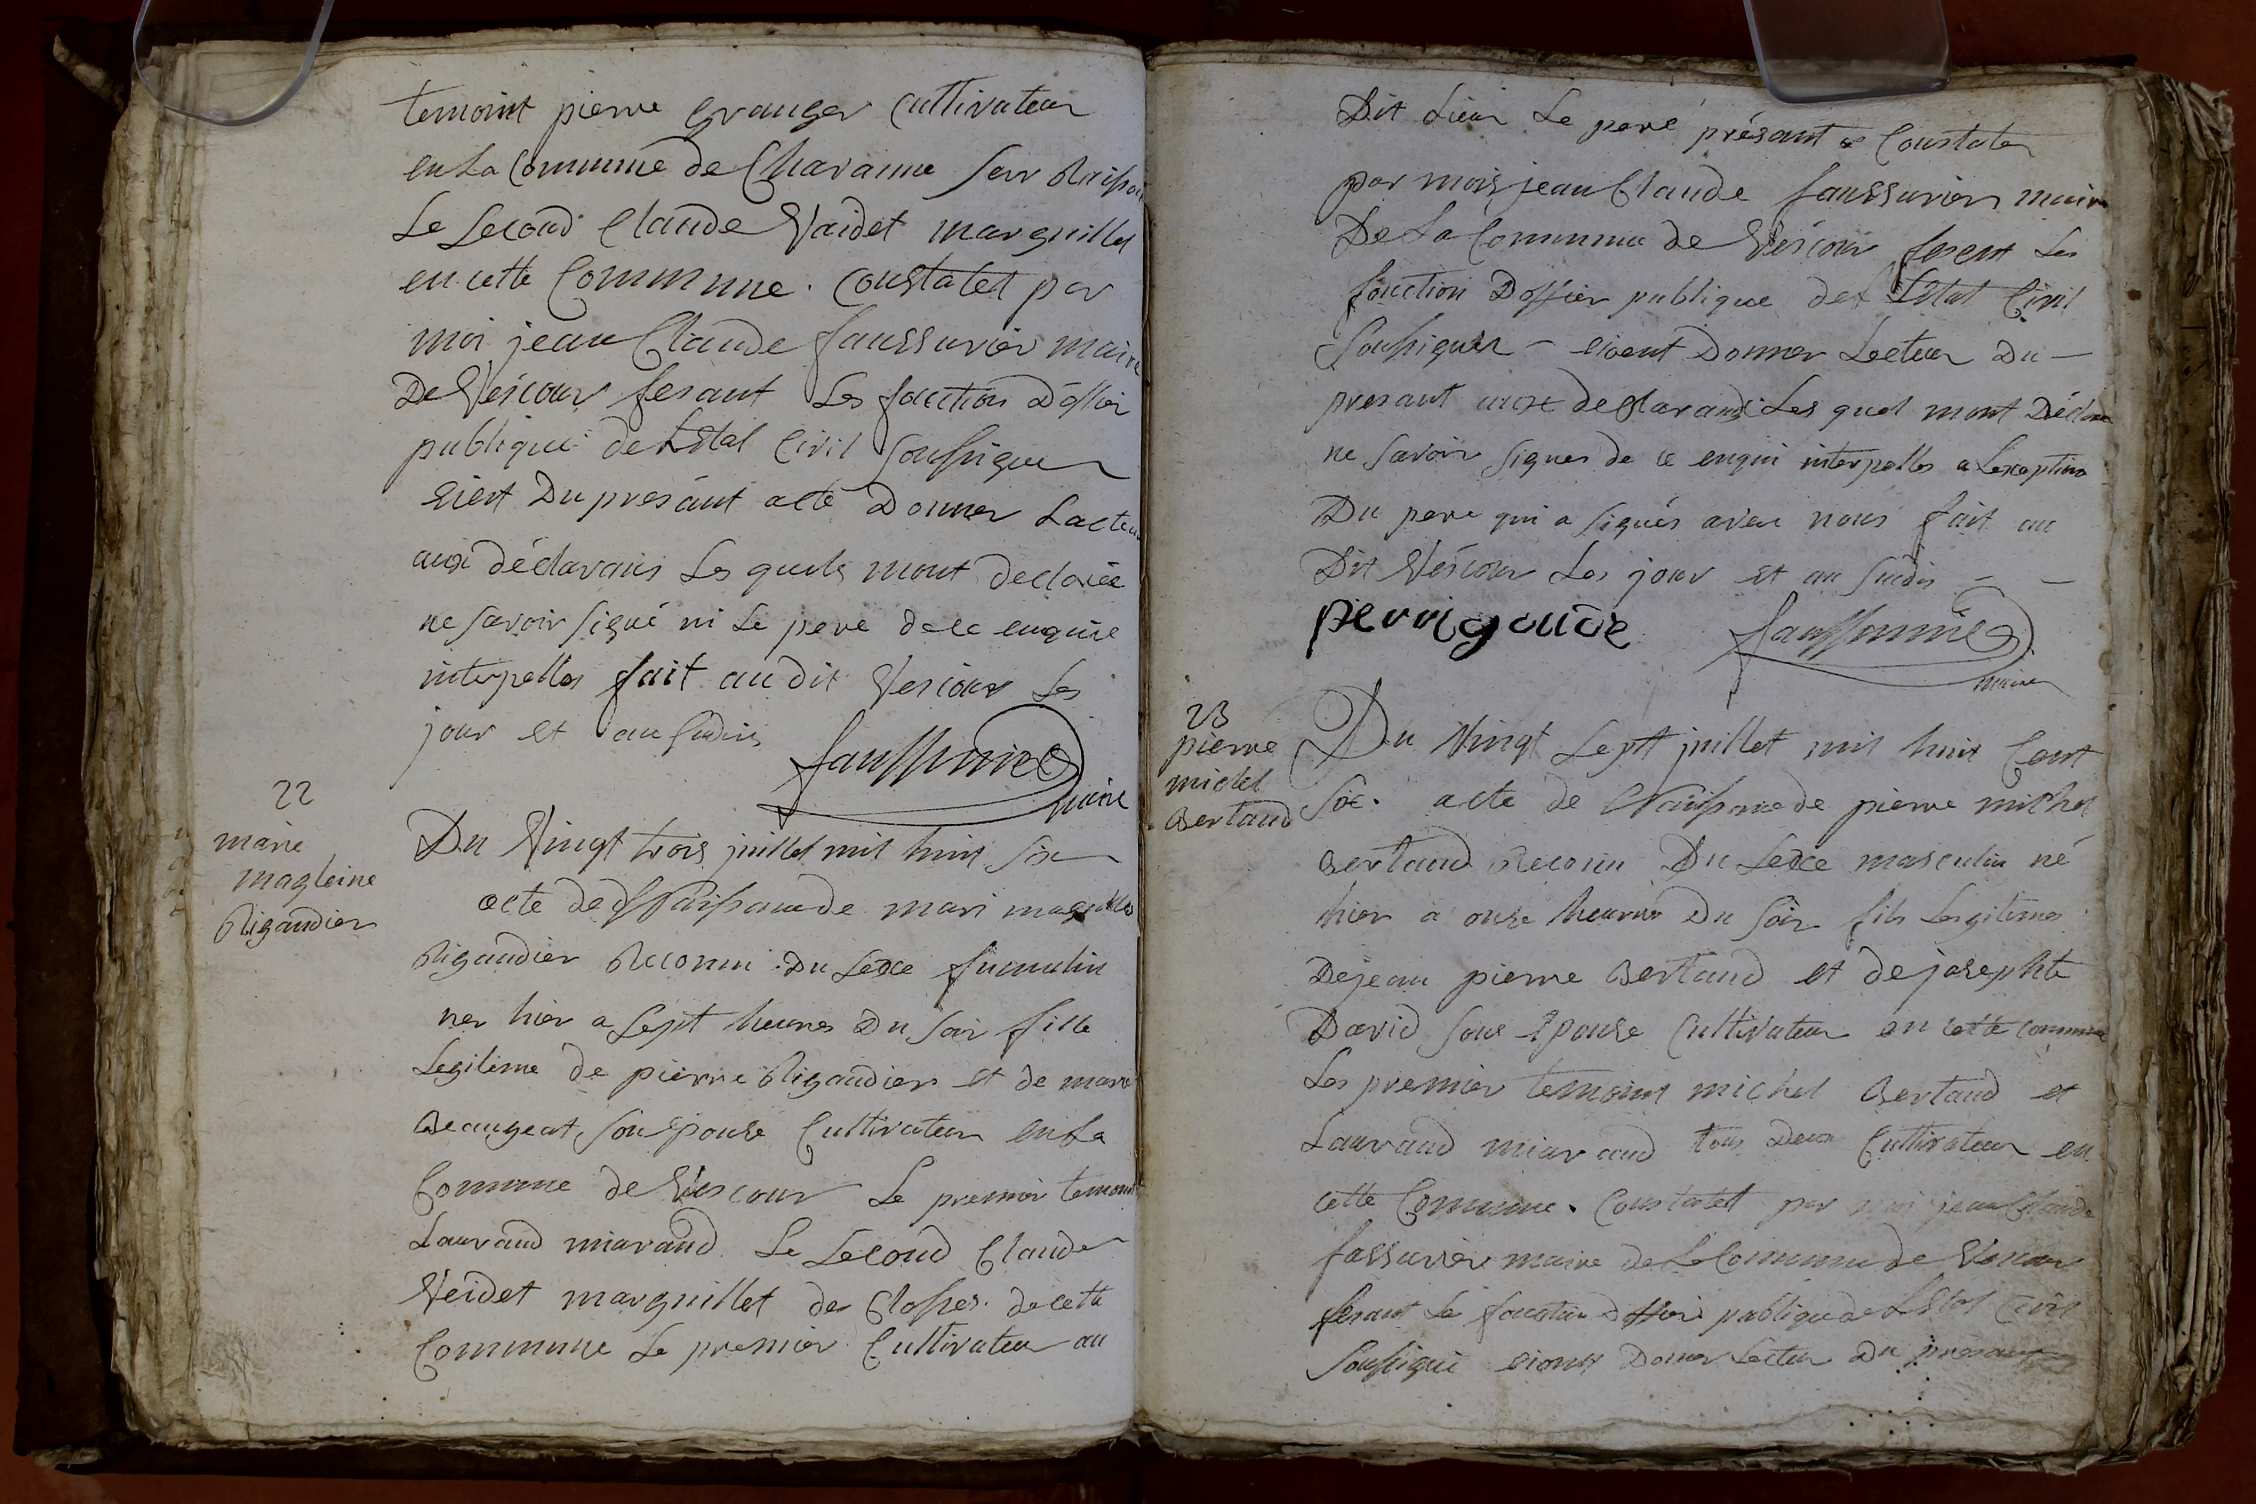 temoint pierre granger Cultivateur
en La Commune de Charanne Sur
Le Second Claude Vaidet marguillet
en cette Commune. Constatet par
moi jean Claude faussurier maire
De Vescour fesant Les fonction Doffier
publique de LEtat Civil Soussigner
eient Du presant acte Donner Lacteur
aux déclarans Les quels mont declarée
ne savoir signé ni Le pere de ce enquire
interpelles fait au dit Vescour Les
jour et an sudis
faussurier
maire
22
marie
magleine
Rigaudier
Du Vingt trois juillet mil huit six
acte de Naissance de mari
Rigaudier Reconu Du Sexe
ner hier a Sept heures Du soir fille
Legitime de pierre Rigaudier et de marie
Beaugeat, son Epouse Cultivateur en La
Commune de Vescour Le premier temoint
Lauraud miaraud Le Second Claude
Veidet marguillet des Closhes de cette
Commune Le premier Cultivateur au
Dit Lieu Le peré présant & Constater
par mois jean Claude faussurier maire
De La Commune de Vescour fesent Les
fonction Doffier publique de LEtat Civil
Soussigner - eient Donner Lecteur Du -
presant aux declarand Les quel mont Déclare
ne savoir signer de ce enqui interpelles a Lexception
Du pere qui a signés avec nous fait au
Dit Vescour Les jour et an sudis - -
perrigaude
faussurier
maire
23
pierre
michel
Bertaud
Du Vingt Sept juillet mil huit Cent
six. acte de Naissance de pierre michel
Bertaud Reconu Du Sexe masculin né
hier a onse heures Du soir fils Legitimes
De jean pierre Bertaud et de josephte
David sone Epouse Cultivateur en cette commune
Les premier temoint michel Bertaud et
Lauraud miaraud tous Deux Cultivateur en
cette Commune. Constatet par moi jean Claude
fassurier maire de La Commune de Vescour
fesant La fonction Doffier publique de LEtat Civil
Soussigné eient Donner Lecteur Du presant